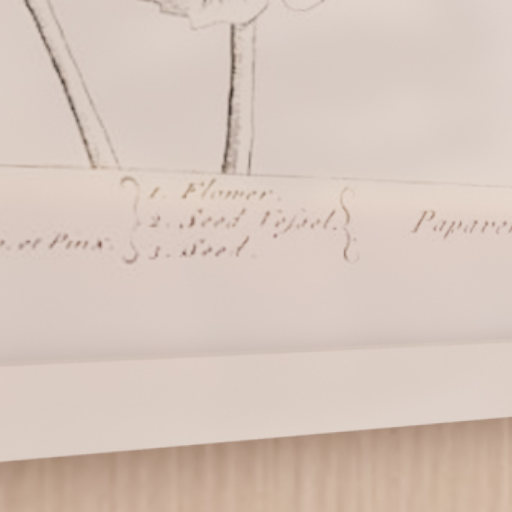 1. Flower.
2. Seed Veſsel.
3. Seed.
et Pinx.
Papaver